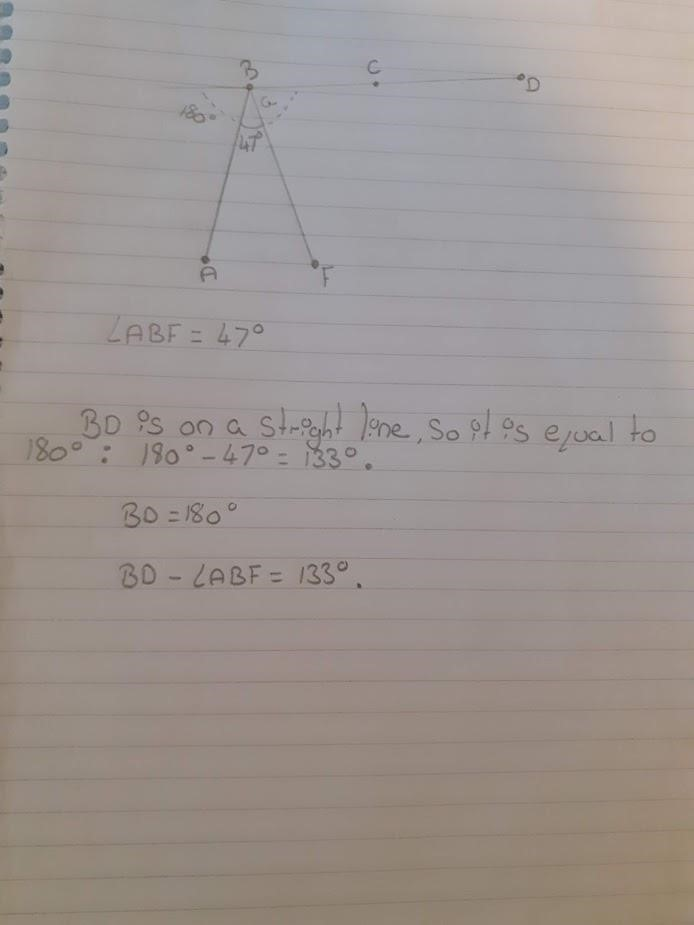 B
C
D
180°
a
47°
A
F
∠ABF = 47°
BD is on a stright line, so it is equal to
180° : 180° - 47° = 133°.
BD = 180°
BD - ∠ABF = 133°.